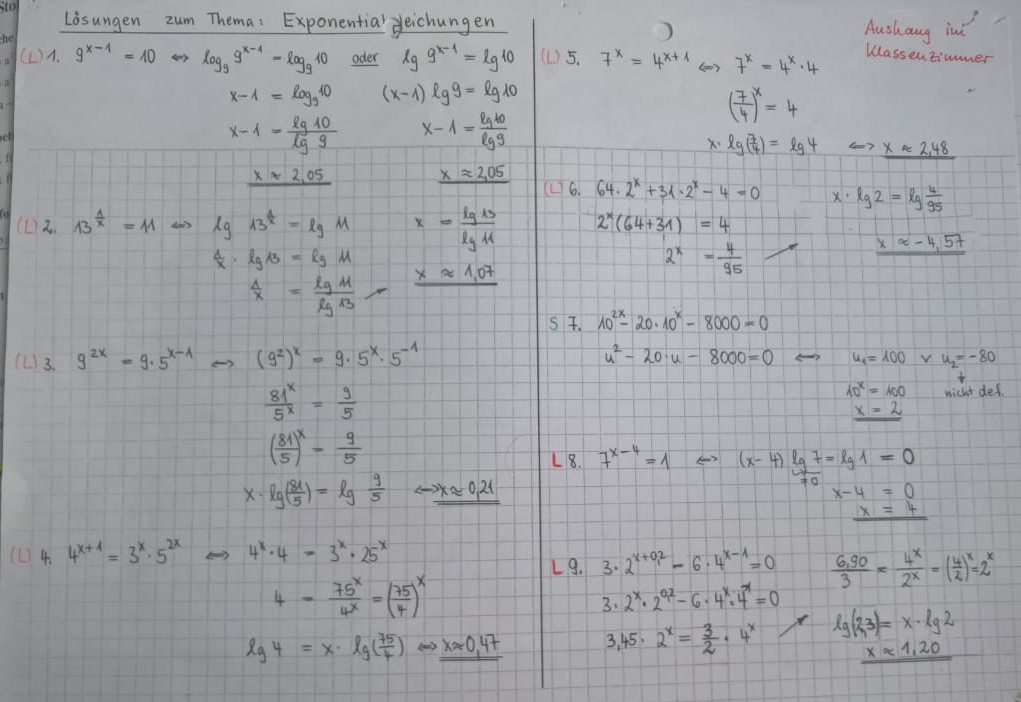 Lösungen zum Thema: Exponentialgleichungen
Aushang im
Klassenzimmer
(L) 1. 9^(x-1) = 10 ⇔ log₉ 9^(x-1) = log₉ 10 oder lg 9^(x-1) = lg 10
x-1 = log₉ 10 (x-1) lg 9 = lg 10
x-1 = lg 10 / lg 9 x-1 = lg 10 / lg 9
x ≈ 2,05 x ≈ 2,05
(L) 2. 13^(1/x) = 11 ⇔ lg 13^(1/x) = lg 11 x = lg 13 / lg 11
1/x · lg 13 = lg 11
1/x = lg 11 / lg 13 x ≈ 1,07
(L) 3. 9^(2x) = 9·5^(x-1) ⇔ (9²)^x = 9·5^x·5^(-1)
81^x / 5^x = 9/5
(81/5)^x = 9/5
x·lg(81/5) = lg 9/5 ⇔ x ≈ 0,21
(L) 4. 4^(x+1) = 3^x·5^(2x) ⇔ 4^x·4 = 3^x·25^x
4 = 75^x / 4^x = (75/4)^x
lg 4 = x· lg(75/4) ⇔ x ≈ 0,47
(L) 5. 7^x = 4^(x+1) ⇔ 7^x = 4^x·4
(7/4)^x = 4
x·lg(7/4) = lg 4 ⇔ x ≈ 2,48
(L) 6. 64·2^x + 31·2^x - 4 = 0 x·lg 2 = lg 4/95
2^x(64+31) = 4
2^x = 4/95 x ≈ -4,57
S 7. 10^(2x) - 20·10^x - 8000 = 0
u² - 20·u - 8000 = 0 ⇔ u₁ = 100 ∨ u₂ = -80
10^x = 100 nicht def.
x = 2
L 8. 7^(x-4) = 1 ⇔ (x-4) lg 7 = lg 1 = 0
≠0
x-4 = 0
x = 4
L 9. 3·2^(x+0,2) - 6·4^(x-1) = 0 6,90/3 = 4^x/2^x = (4/2)^x = 2^x
3·2^x·2^(0,2) - 6·4^x·4^(-1) = 0
3,45·2^x = 3/2·4^x lg(2,3) = x·lg 2
x ≈ 1,20